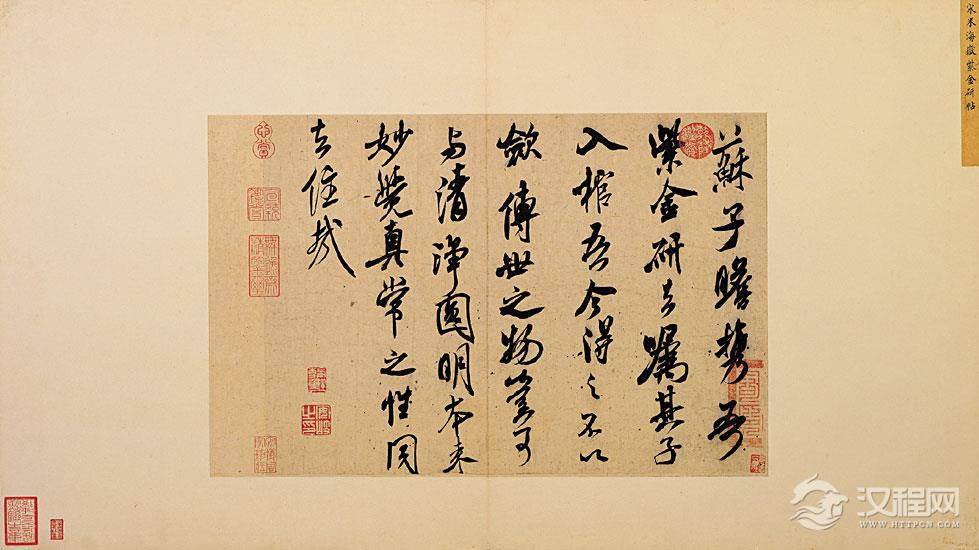 宋米海嶽紫金研帖
蘇子瞻携吾
紫金研去嘱其子
入棺吾今得之不以
歛傳世之物豈可
与清淨圓明本来
妙覺真常之性同
去住哉
心賞
汉程网
WWW.HTTPCN.COM